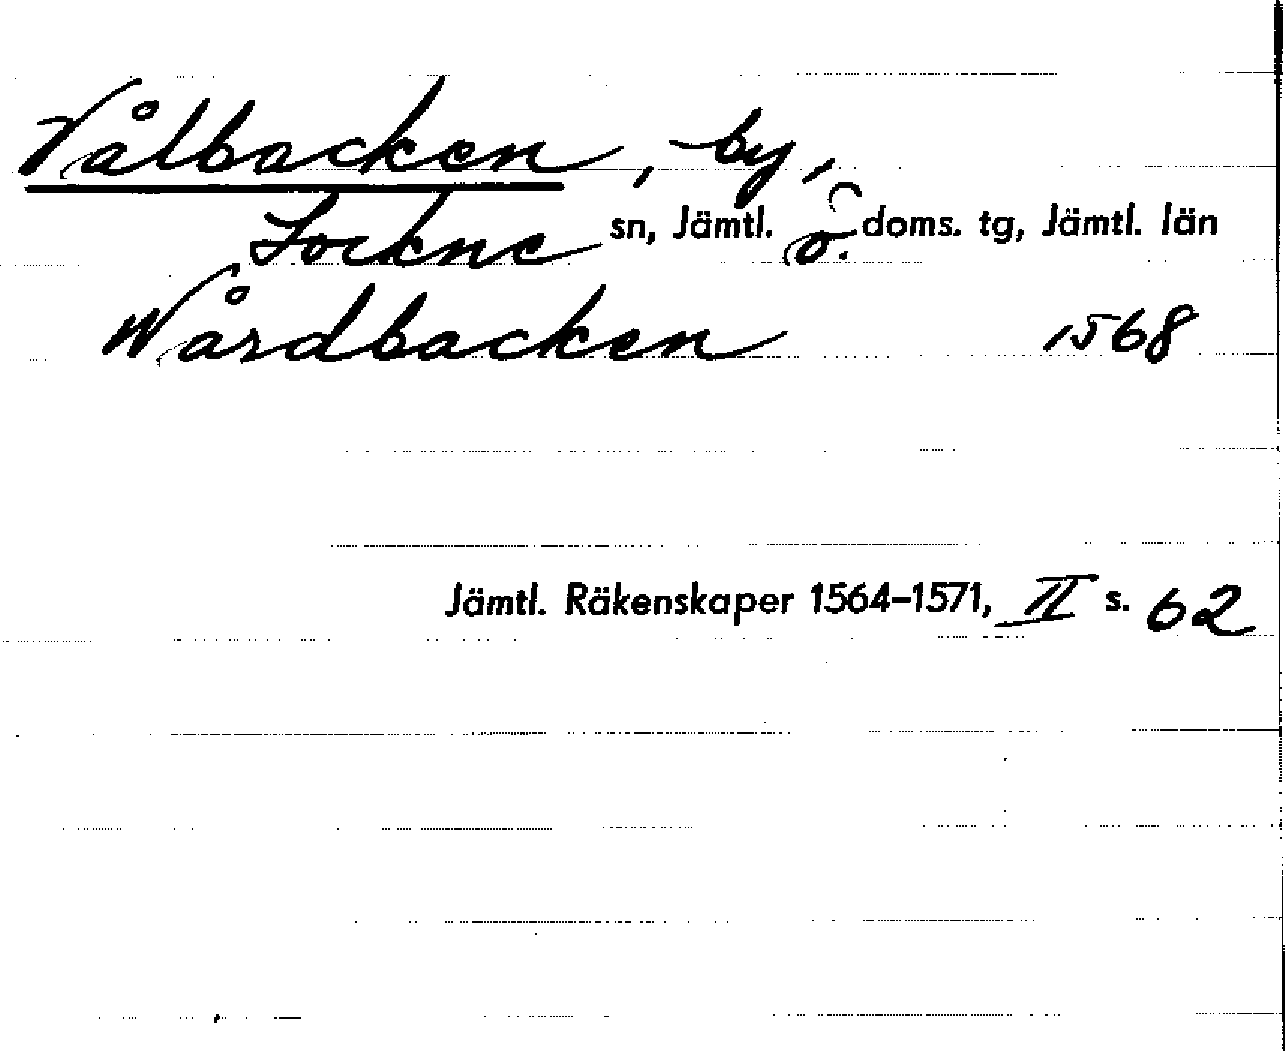 Vålbacken, by,
Lockne sn, Jämtl. ö. doms. tg, Jämtl. län
Wårdbacken 1568
Jämtl. Räkenskaper 1564–1571, II s. 62